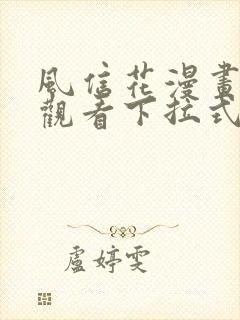 風信花漫畫
觀看下拉式
盧婷雯